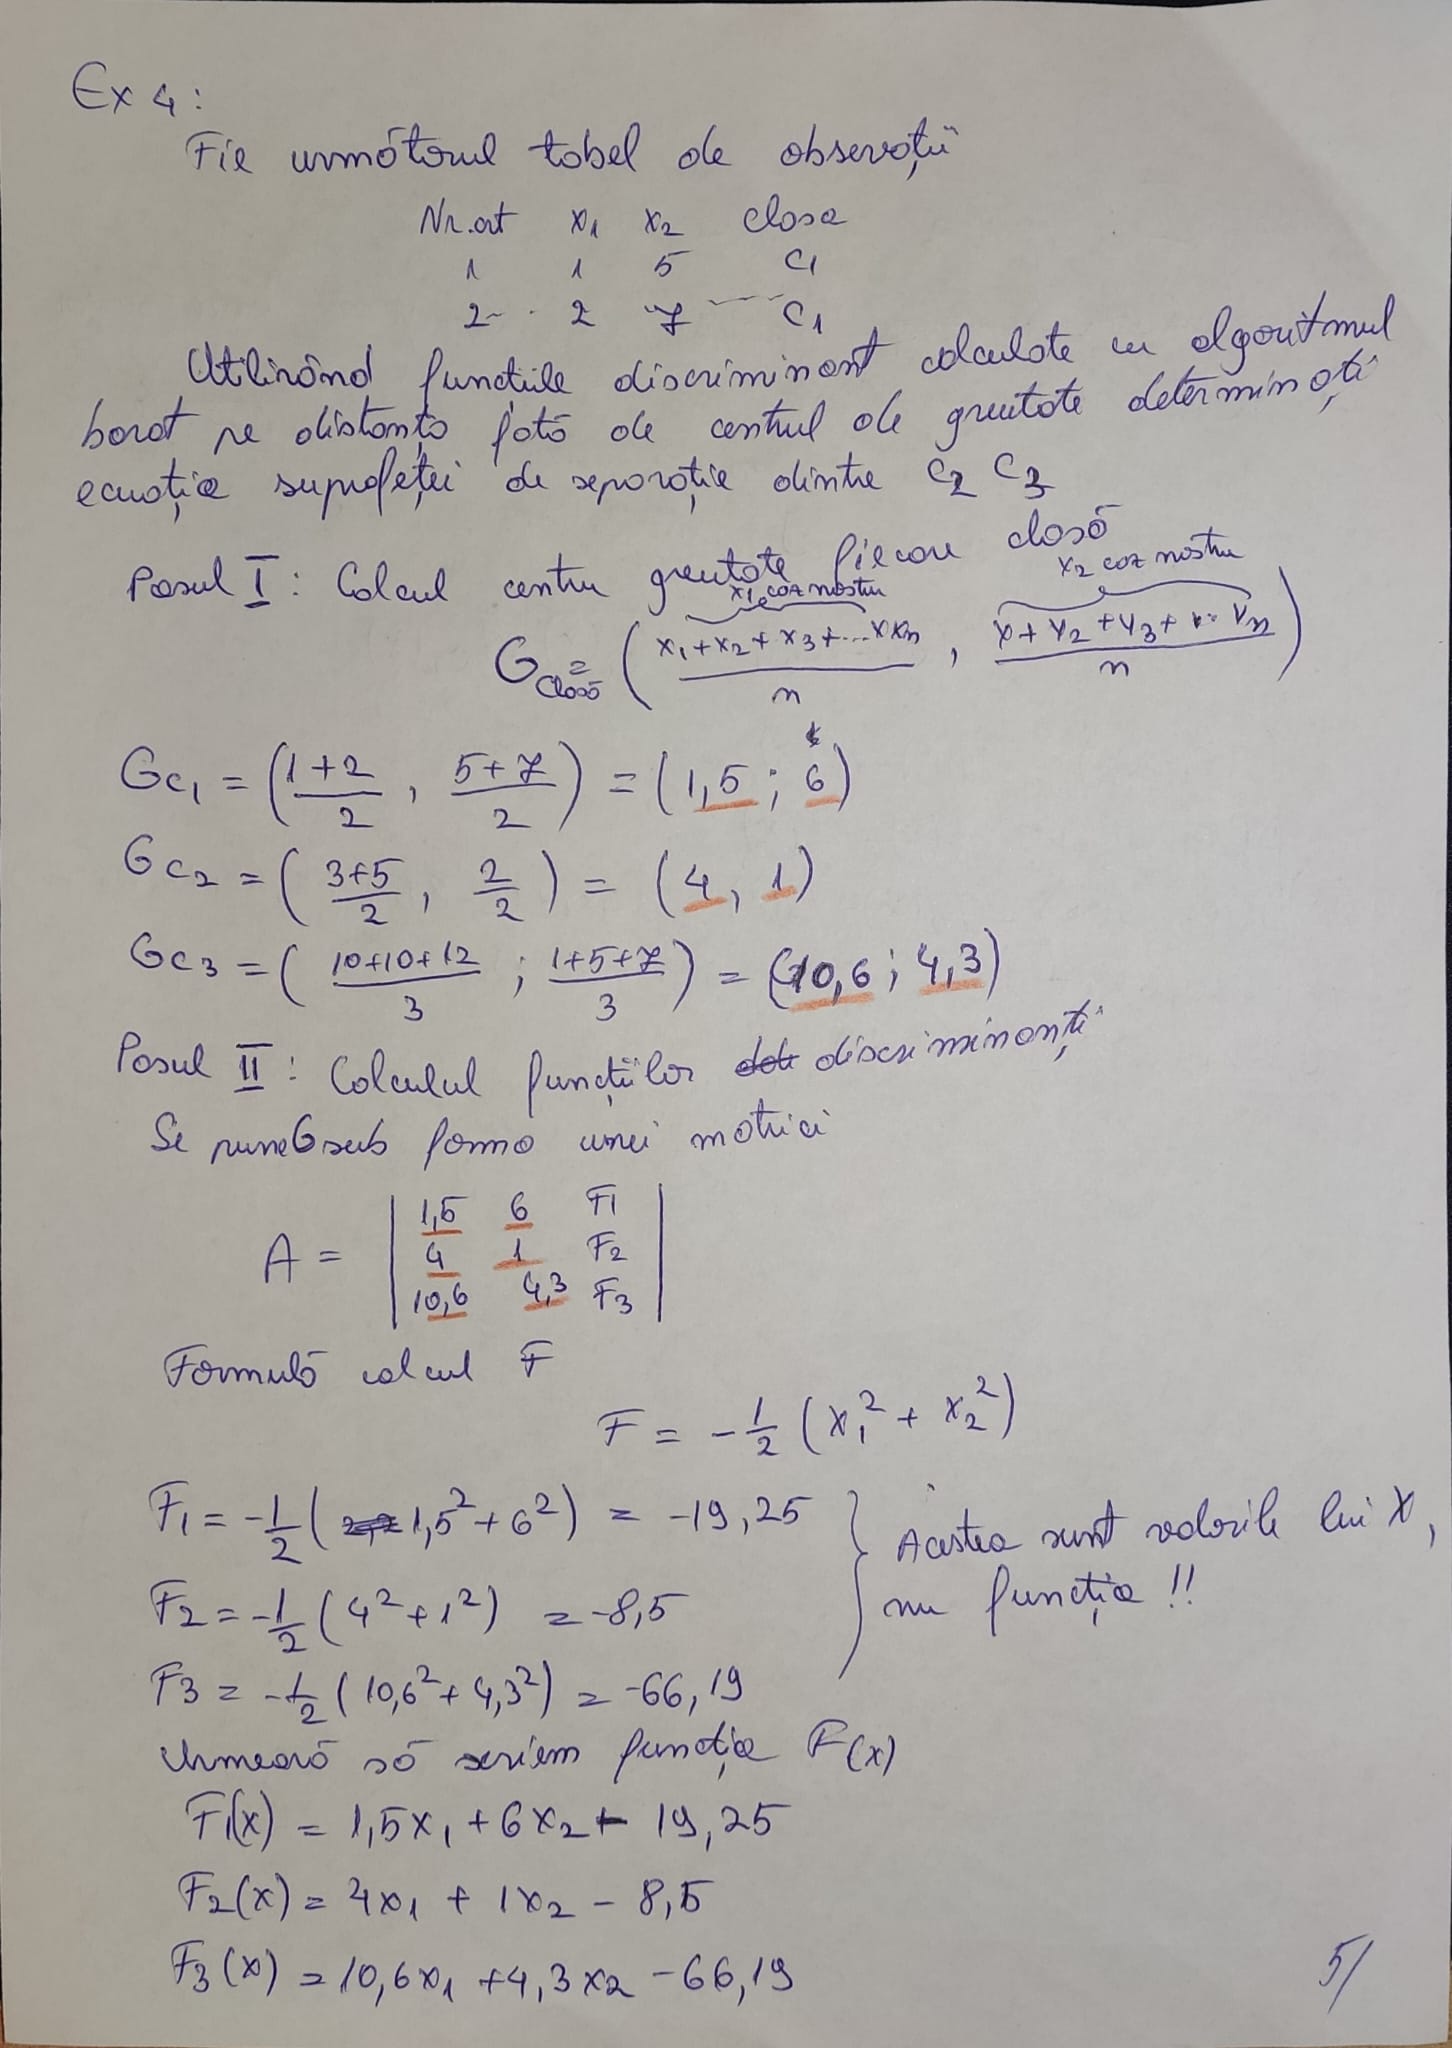 Ex 4:
Fie următorul tabel de observații
Nr.crt x1 x2 clasa
1 1 5 C1
2 2 7 C1
Utilizând funcțiile discriminant calculate cu algoritmul
bazat pe distanța față de centrul de greutate determinați
ecuația suprafeței de separație dintre C2 C3
Pasul I: Calcul centru greutate fiecare clasă
x1 caz nostru x2 caz nostru
G clasă = ( (x1+x2+x3+...+xn)/n , (y+y2+y3+...yn)/n )
GC1 = ( (1+2)/2 , (5+7)/2 ) = (1,5 ; 6)
GC2 = ( (3+5)/2 , 2/2 ) = (4, 1)
GC3 = ( (10+10+12)/3 ; (1+5+7)/3 ) = (10,6 ; 4,3)
Pasul II: Calculul funcțiilor discriminanți
Se pune G sub forma unei matrici
A = | 1,5 6 F1 |
| 4 1 F2 |
| 10,6 4,3 F3 |
Formulă calcul F
F = -1/2 (x1² + x2²)
F1 = -1/2 (1,5² + 6²) = -19,25
F2 = -1/2 (4² + 1²) = -8,5
F3 = -1/2 (10,6² + 4,3²) = -66,19
} Acestea sunt valorile lui X,
nu funcția !!
Urmează să scriem funcția F(x)
F1(x) = 1,5x1 + 6x2 - 19,25
F2(x) = 4x1 + 1x2 - 8,5
F3(x) = 10,6x1 + 4,3x2 - 66,19
5/